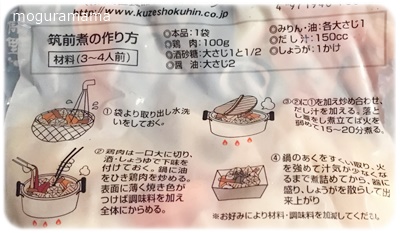 moguranuma
http://www.kuzeshokuhin.co.jp
筑前煮の作り方
材料(3~4人前)
●本品:1袋
●鶏肉:100g
●酒砂糖:大さじ1と1/2
●醤油:大さじ2
●みりん・油:各大さじ1
●だし汁:150cc
●しょうが:1かけ
①袋より取り出し水洗
いをしておく。
②鶏肉は一口大に切り、
酒・しょうゆで下味を
付けておく。鍋に油を
ひき鶏肉を炒める。
表面に薄く焼き色が
つけば調味料を加え
全体にからめる。
③②に①を加え炒め合わせ、
だし汁を加える。落と
し蓋をし煮立てば火を
弱めて15~20分煮る。
④鍋のあくをすくい取り、火
を強めて汁気が少なくな
るまで煮詰めてから、器に
盛り、しょうがを散らして出
来上がり
※お好みにより材料・調味料を加減してください。